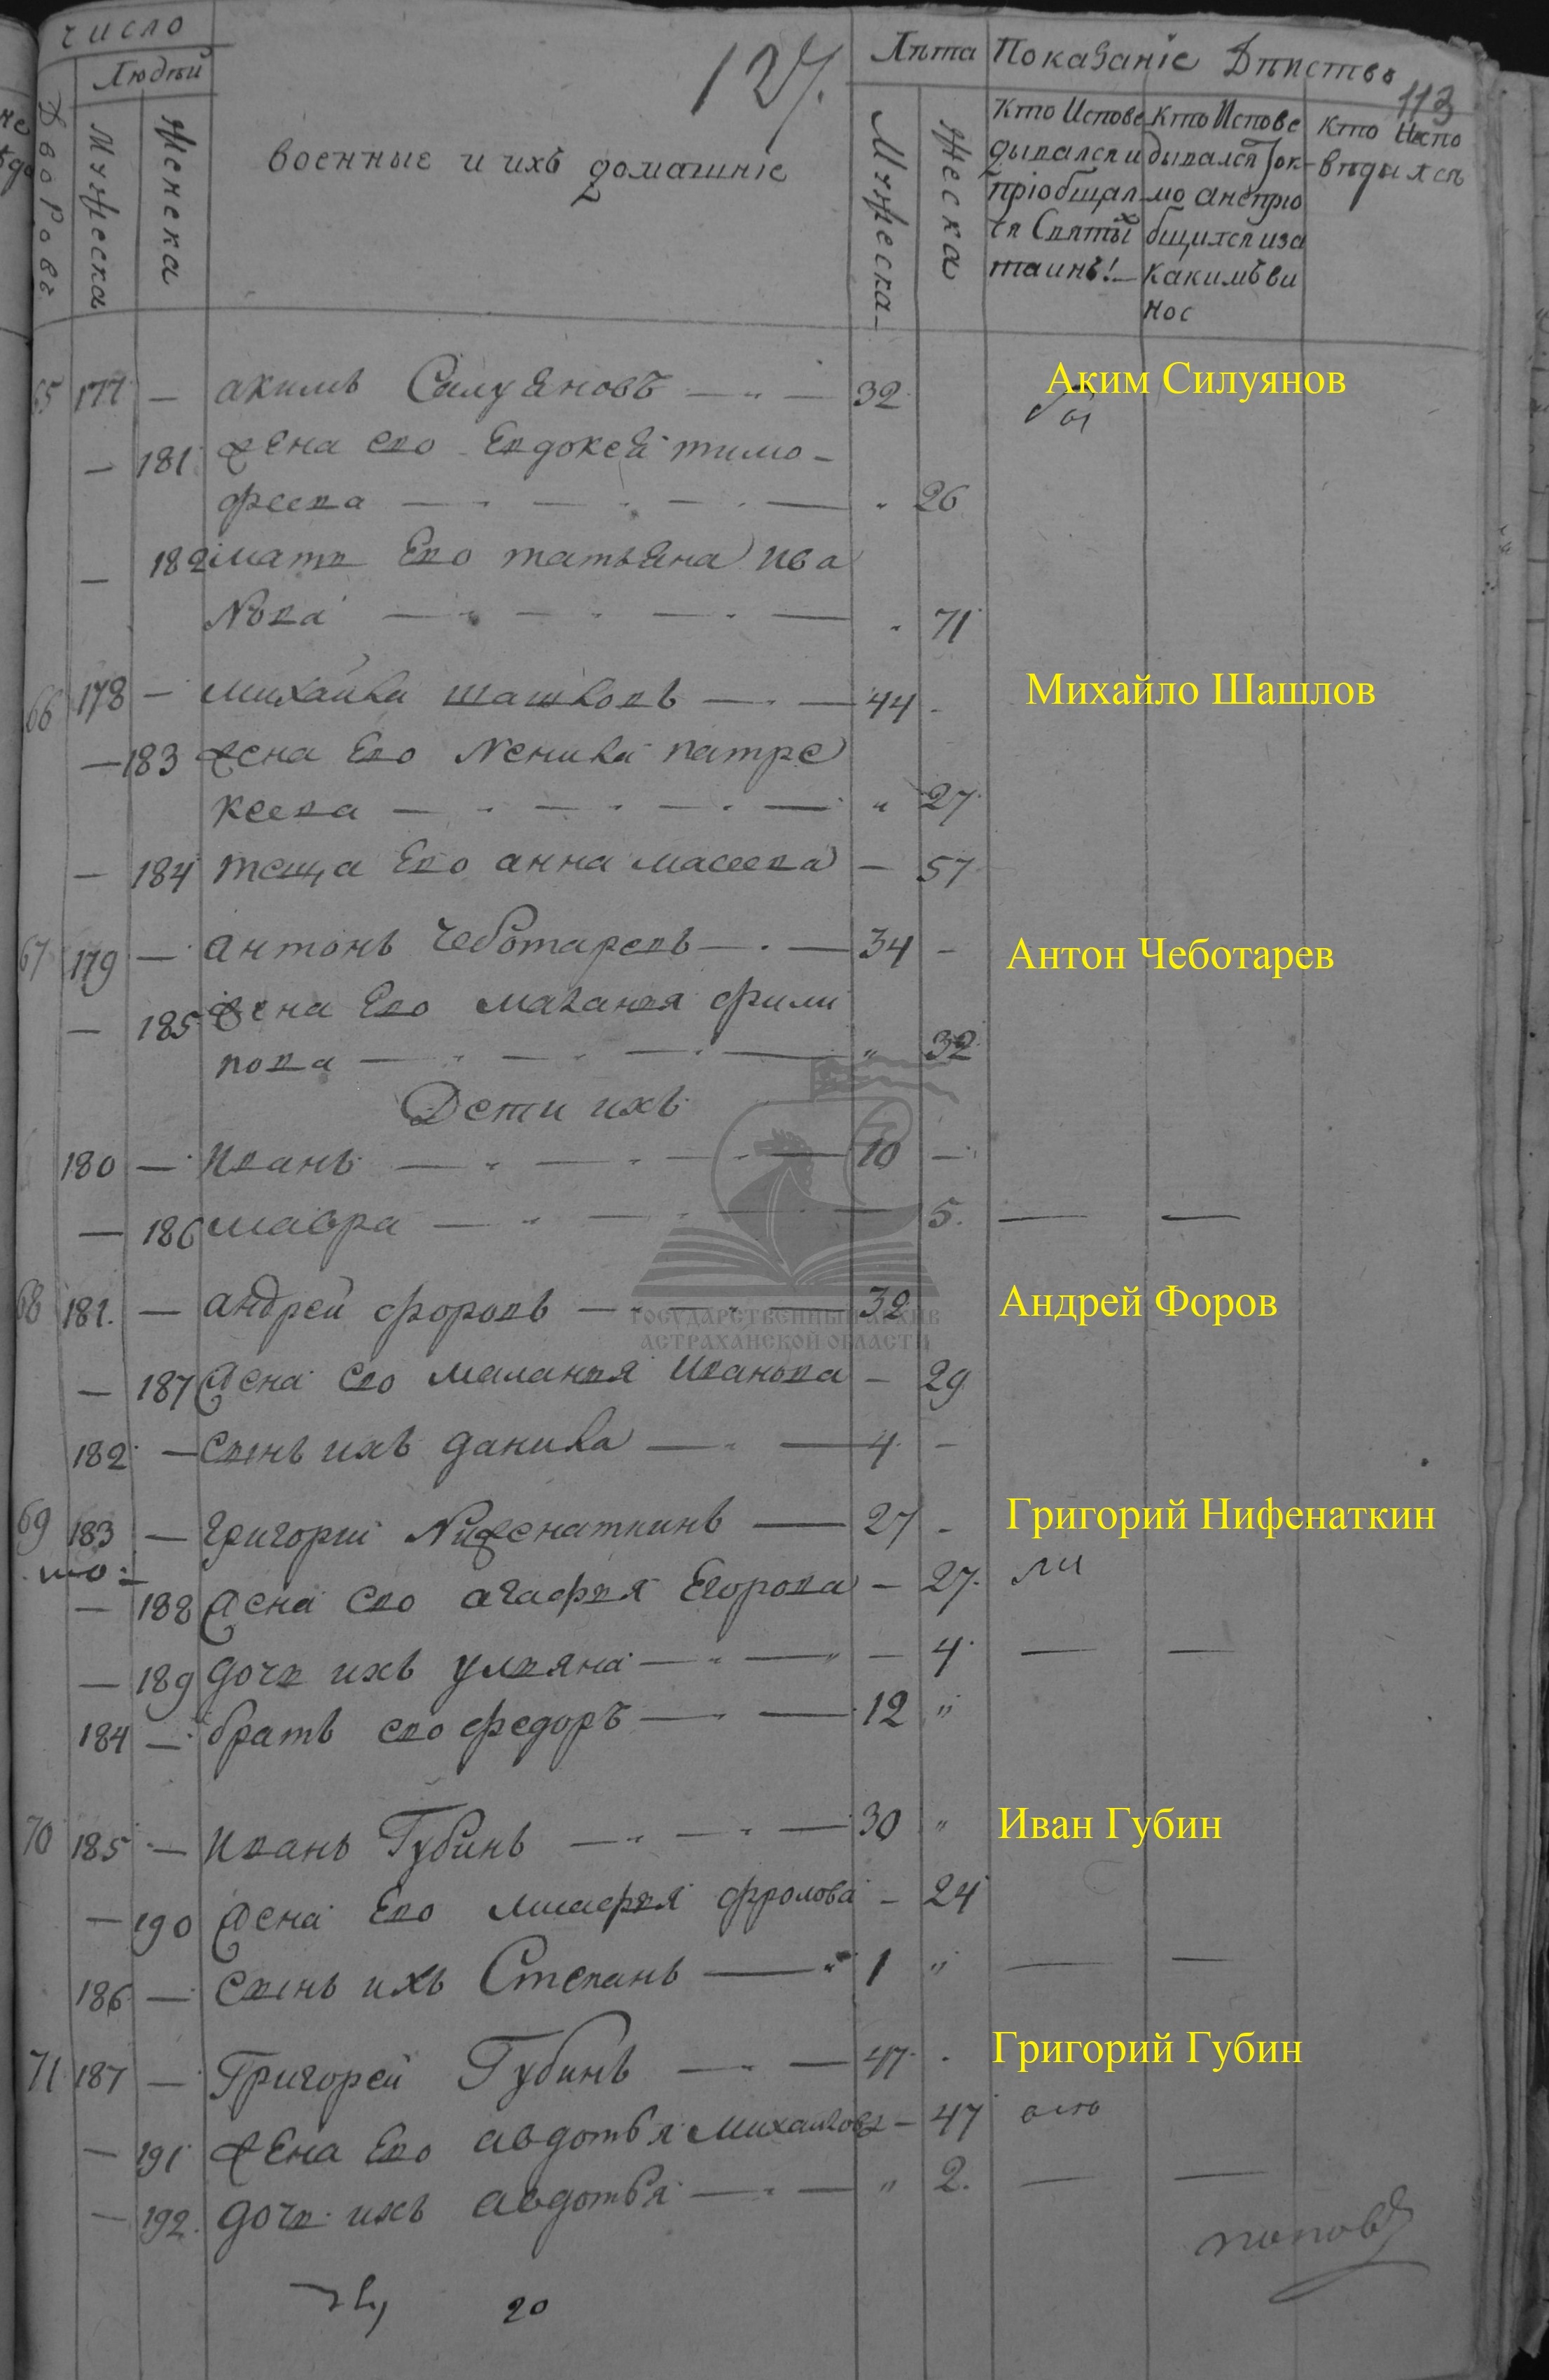 число
Людѣй
127.
Лѣта Показаніе Дѣиство
113
Дворовъ
Мужеска
Женска
военные и ихъ домашніе
Мужеска
Жеска
кто Испове
дывался и
пріобщал
ся Святых
таинъ!
кто Испове
дывался Ток
мо анепрıо
бщился иза
какимъ ви
нос
кто Испо
65 177 — акимъ Силуяновъ — „ — 32
Аким Силуянов
— 181 жена ево Евдокея тимо-
феева — „ 26
— 182 мать Ево татьяна ива
Nова — „ 71
66 178 — михаила шашловъ — „ — 44 -
Михайло Шашлов
— 183 жена Ево Nенила патре
кеева — „ 27
— 184 теща Ево анна масеева — 57
67 179 — антонъ чеботаревъ — „ — 34 -
Антон Чеботарев
— 185 жена Ево маланья фили
пова — „ 32
Дети ихъ
180 — Иванъ — „ 10 —
— 186 мавра — „ 5. — —
68 181. — андрей форовъ — „ 32
Андрей Форов
ГОСУДАРСТВЕННЫЙ АРХИВ
АСТРАХАНСКОЙ ОБЛАСТИ
— 187 жена ево маланья Иванова — 29
182 — сынъ ихъ данила — „ — 4. -
69 183 — григорıй Nифенаткинъ — 27 -
Григорий Нифенаткин
— 188 жена ево агафья Егорова — 27.
— 189 дочь ихъ ульяна — „ — 4 — —
184 — братъ ево федоръ — „ — 12 „
70 185 — Иванъ Губинъ — „ — 30 „
Иван Губин
— 190 жена Ево фролова — 24
186 — сынъ ихъ Степанъ — „ 1 „ — —
71 187 — Григорей Губинъ — „ — 47
Григорий Губин
— 191 жена Ево авдотья михаилова — 47
— 192. дочь ихъ авдотья — „ — „ 2. — —
поповъ
20